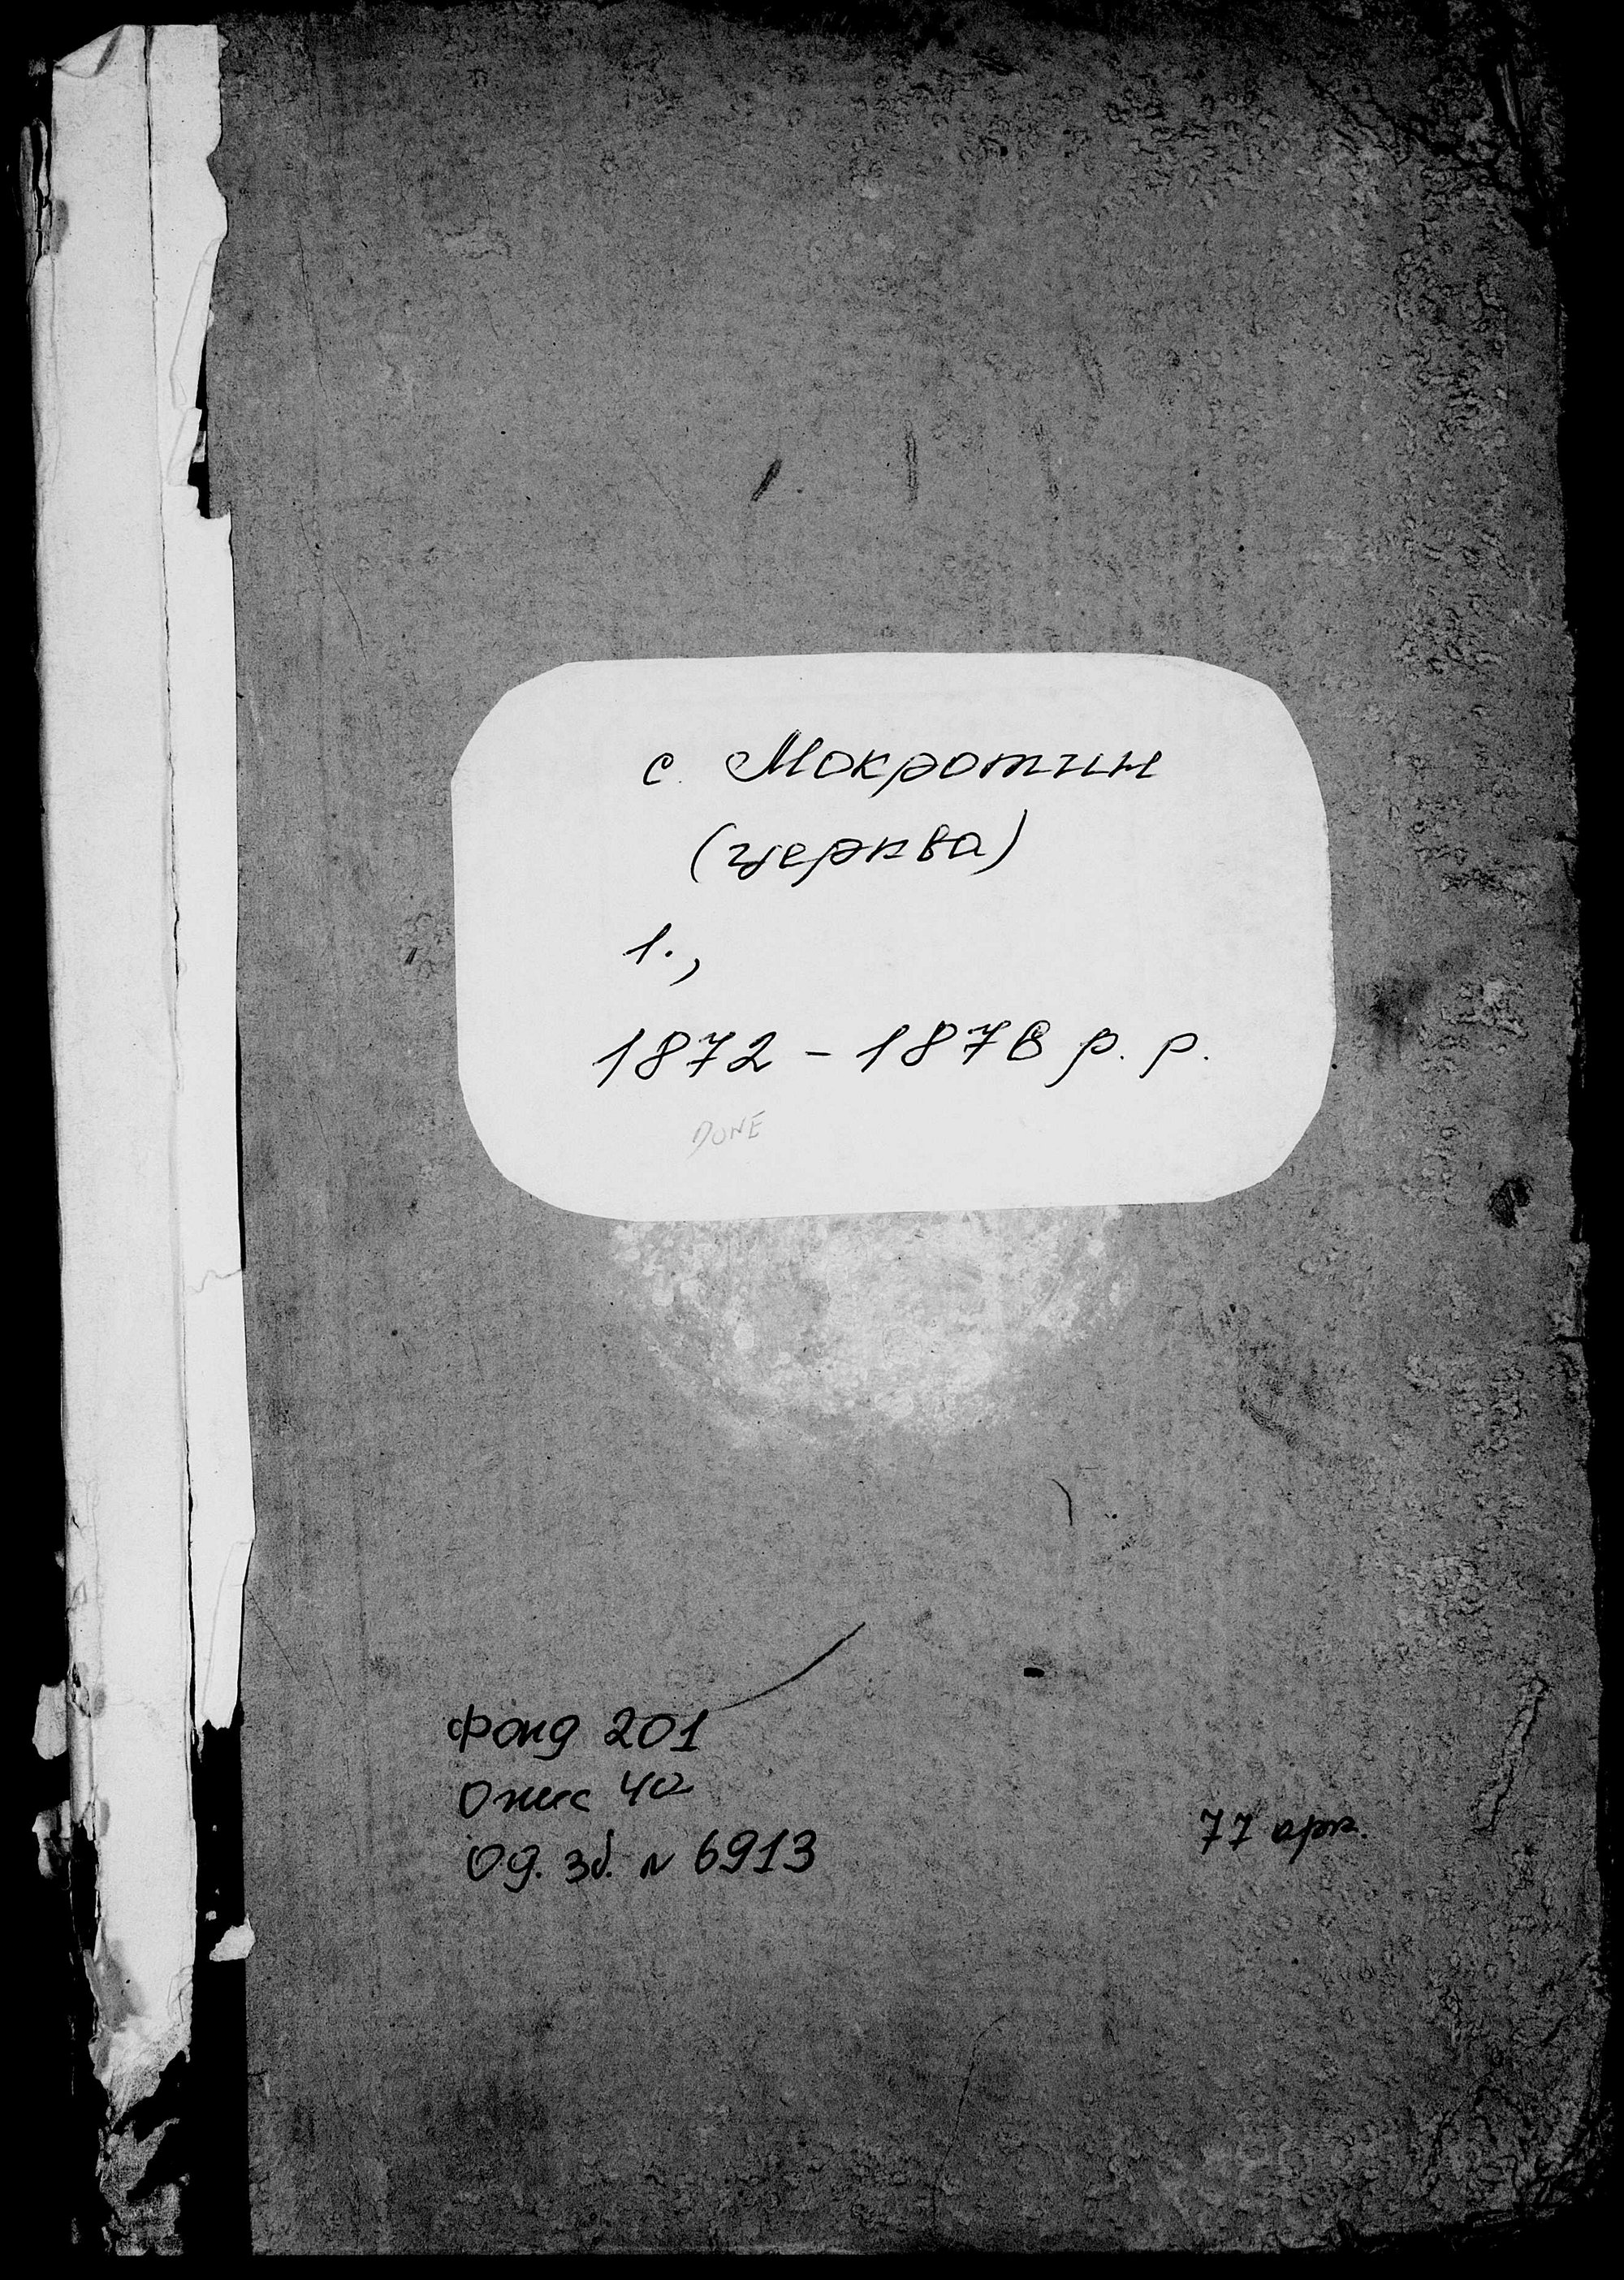 с. Мокротин
(церква)
1.,
1872 – 1878 р. р.
DONE
Фонд 201
Опис 4а
Од. зб. № 6913
77 арк.